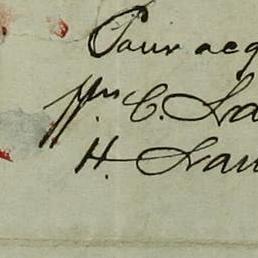 Pour acq
ppn C. La
H. Lau